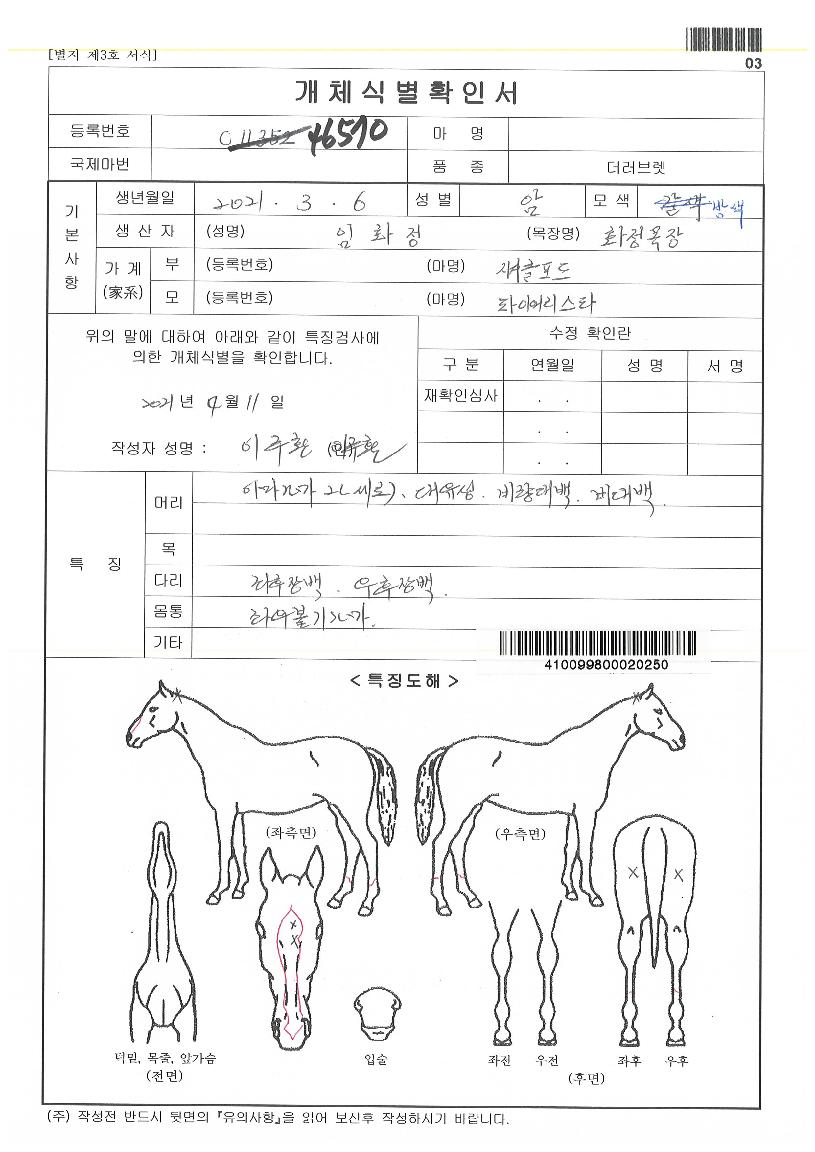 [별지 제3호 서식]
03
개체식별확인서
등록번호 011352 46570 마 명
국제마번 품 종 더러브렛
기본사항
생년월일 2021 . 3 . 6 성 별 암 모 색 갈색 밤색
생 산 자 (성명) 임 화 정 (목장명) 화정목장
가 계 (家系) 부 (등록번호) (마명) 섀클포드
모 (등록번호) (마명) 파이어리스타
위의 말에 대하여 아래와 같이 특징검사에
의한 개체식별을 확인합니다.
2021년 4월 11일
작성자 성명 : 이주환
수정 확인란
구 분 연월일 성 명 서 명
재확인심사 . .
. .
. .
특 징
머리 대유성. 비량대백.
목
다리 좌후장백. 우후장백.
몸통
기타
410099800020250
< 특징도해 >
(좌측면) (우측면)
턱밑, 목줄, 앞가슴
(전면)
입술
좌전 우전 좌후 우후
(후면)
(주) 작성전 반드시 뒷면의 『유의사항』을 읽어 보신후 작성하시기 바랍니다.